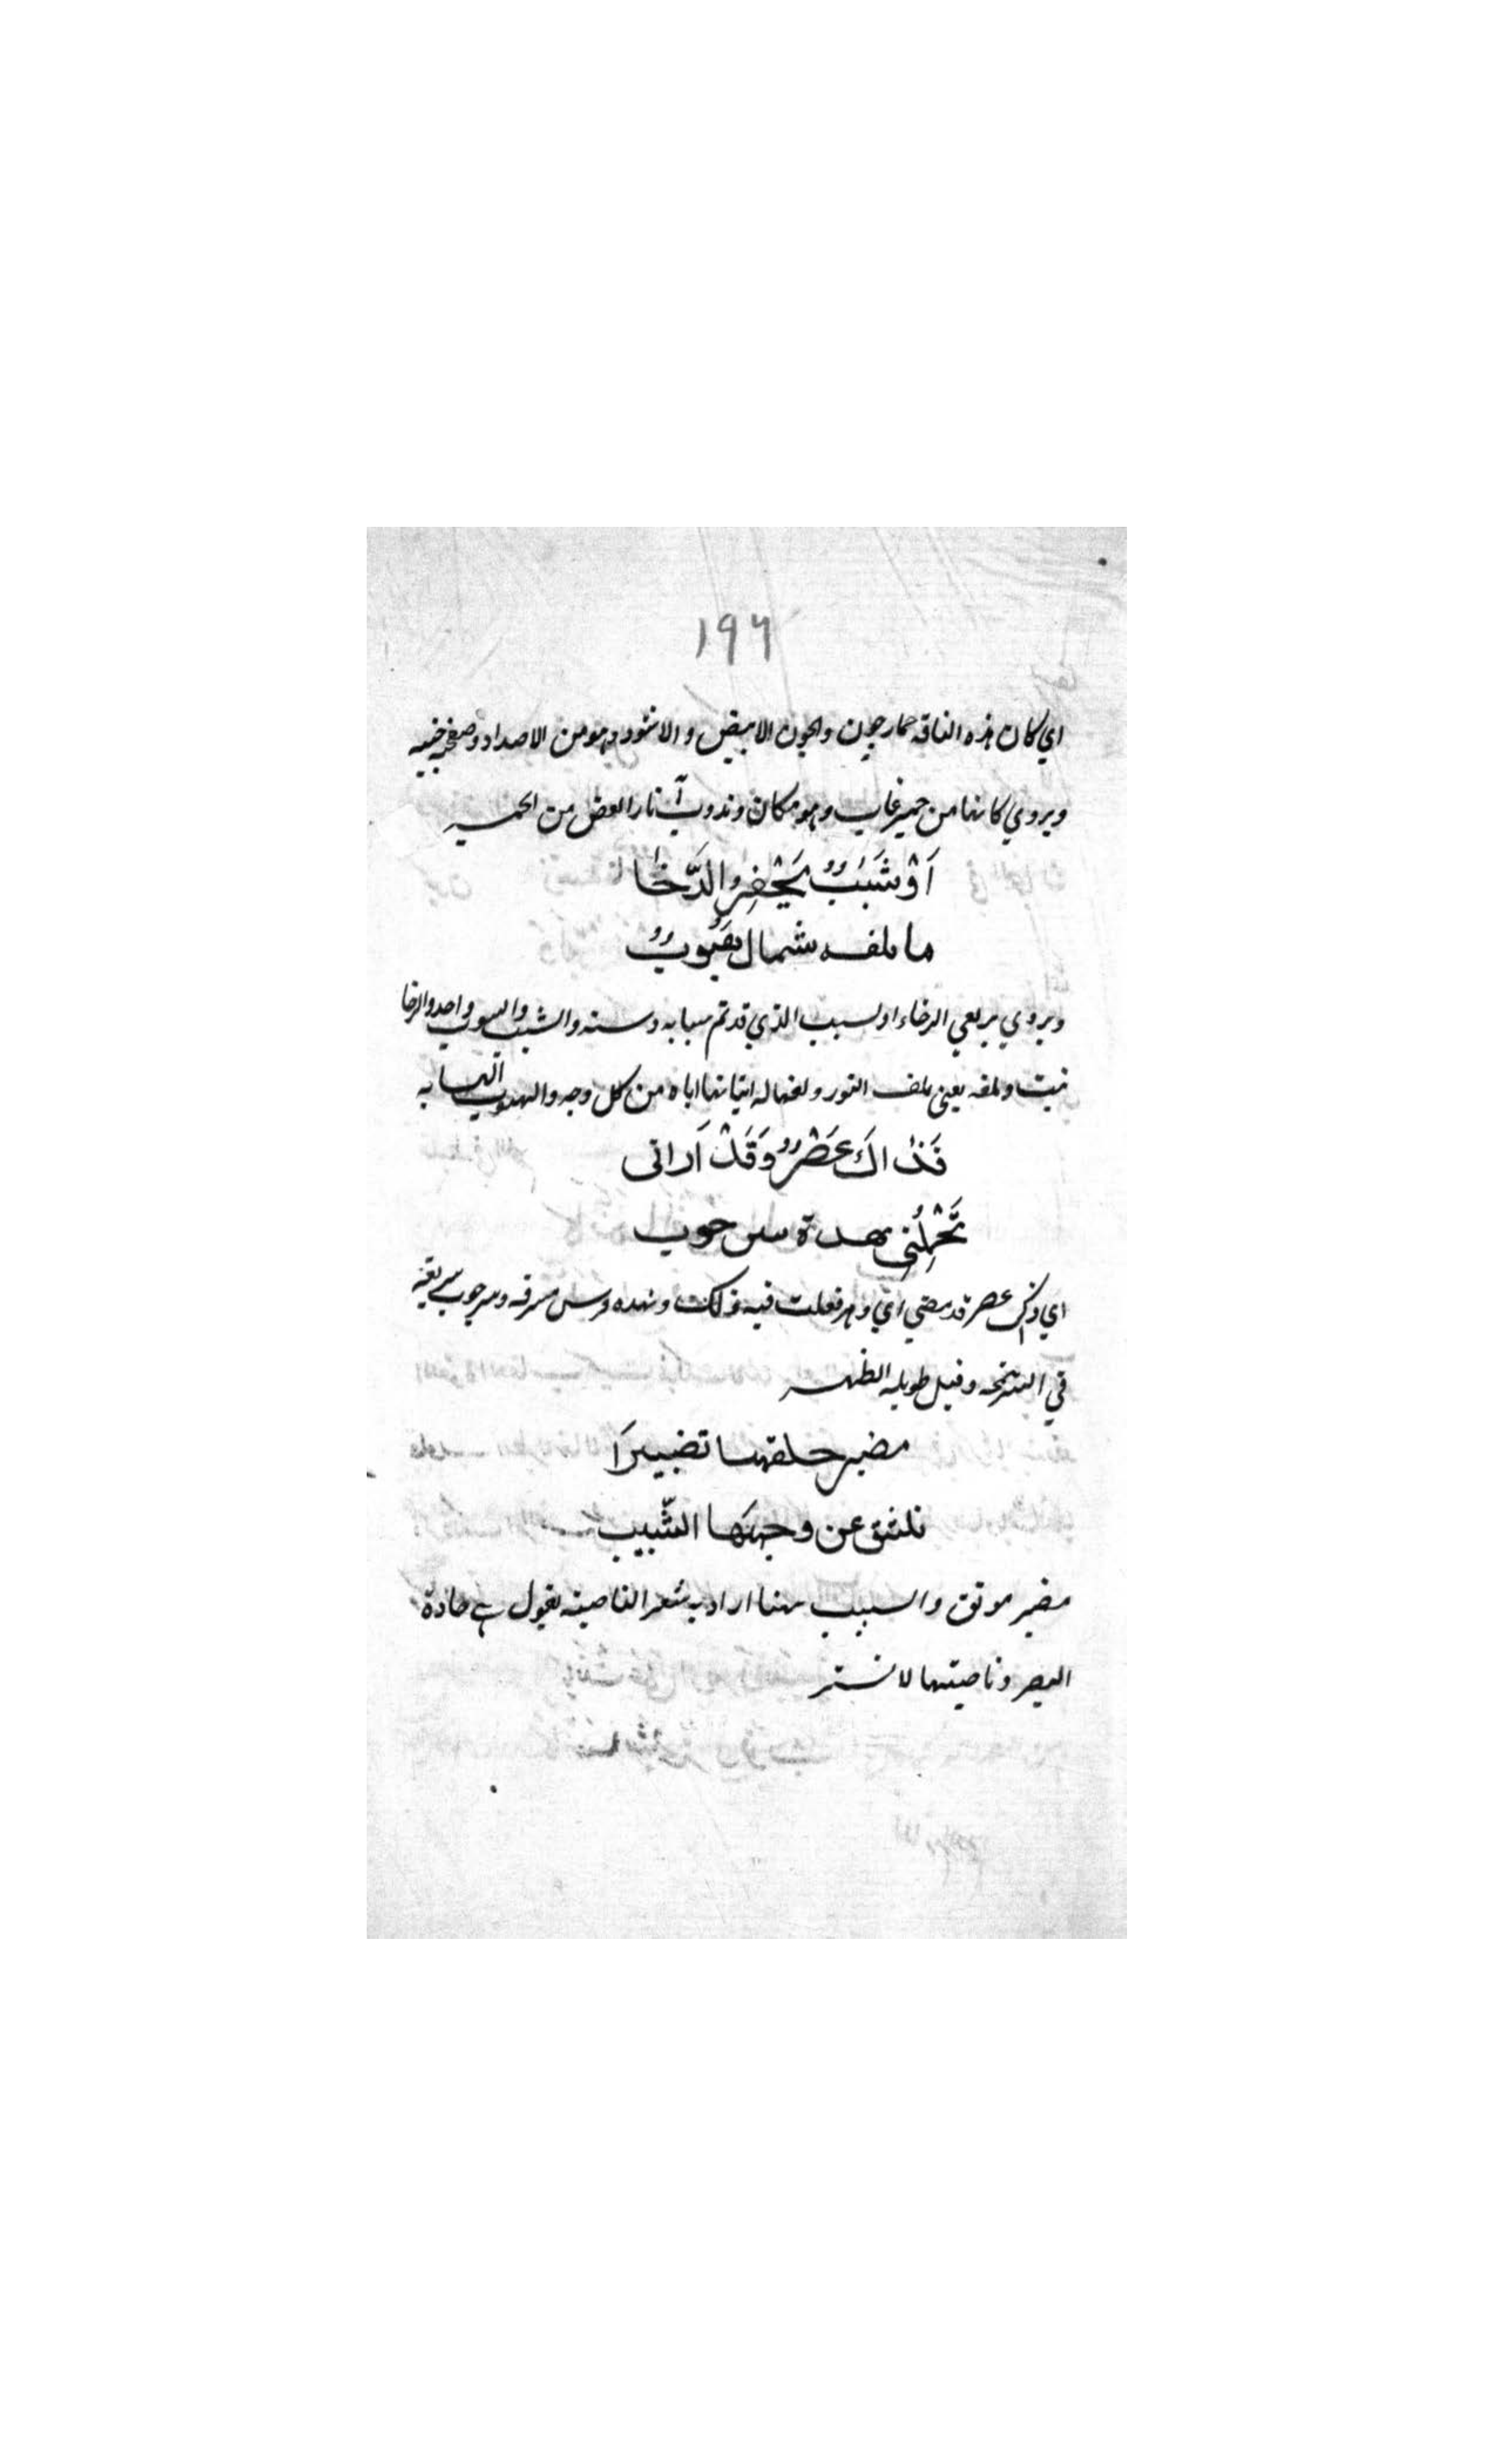 ١٩٦
اي كان هذه الناقه حمار جون والجون الابيض والاسود وهو من الاضداد وصفحته جنبيه
ويروي كانها من حمير غاب وهو مكان وندوب آثار العض من الحمير
اَوْ شَبَبٌ يَحْفِرُ الرُّخَامَا
ما تلفه شمال هَبُوبُ
ويروي يرتعي الرخاء او لشبب الذي قد تم شبابه وسنه والشبب والشبوب واحد والرخا
نبت وتلفه يعني تلف الثور ولفها له اتيانها اياه من كل وجه والهبوب الهابه
فَذَاكَ عَصْرٌ وَقَدْ اَرَانى
تَحْمِلُنِى نهدة سرحوب
اي ذاك عصر قد مضي اي دهر فعلت فيه ذلك ونهده فرس مشرفه وسرحوب سريعة
في السير سمحه وقيل طويله الظهر
مضبر خلقها تضبيرَا
ينشق عن وجهها السَّبيب
مضبر موثق والسبيب ههنا اراد به شعر الناصية يقول هي حادة
البصر وناصيتها لا تستر